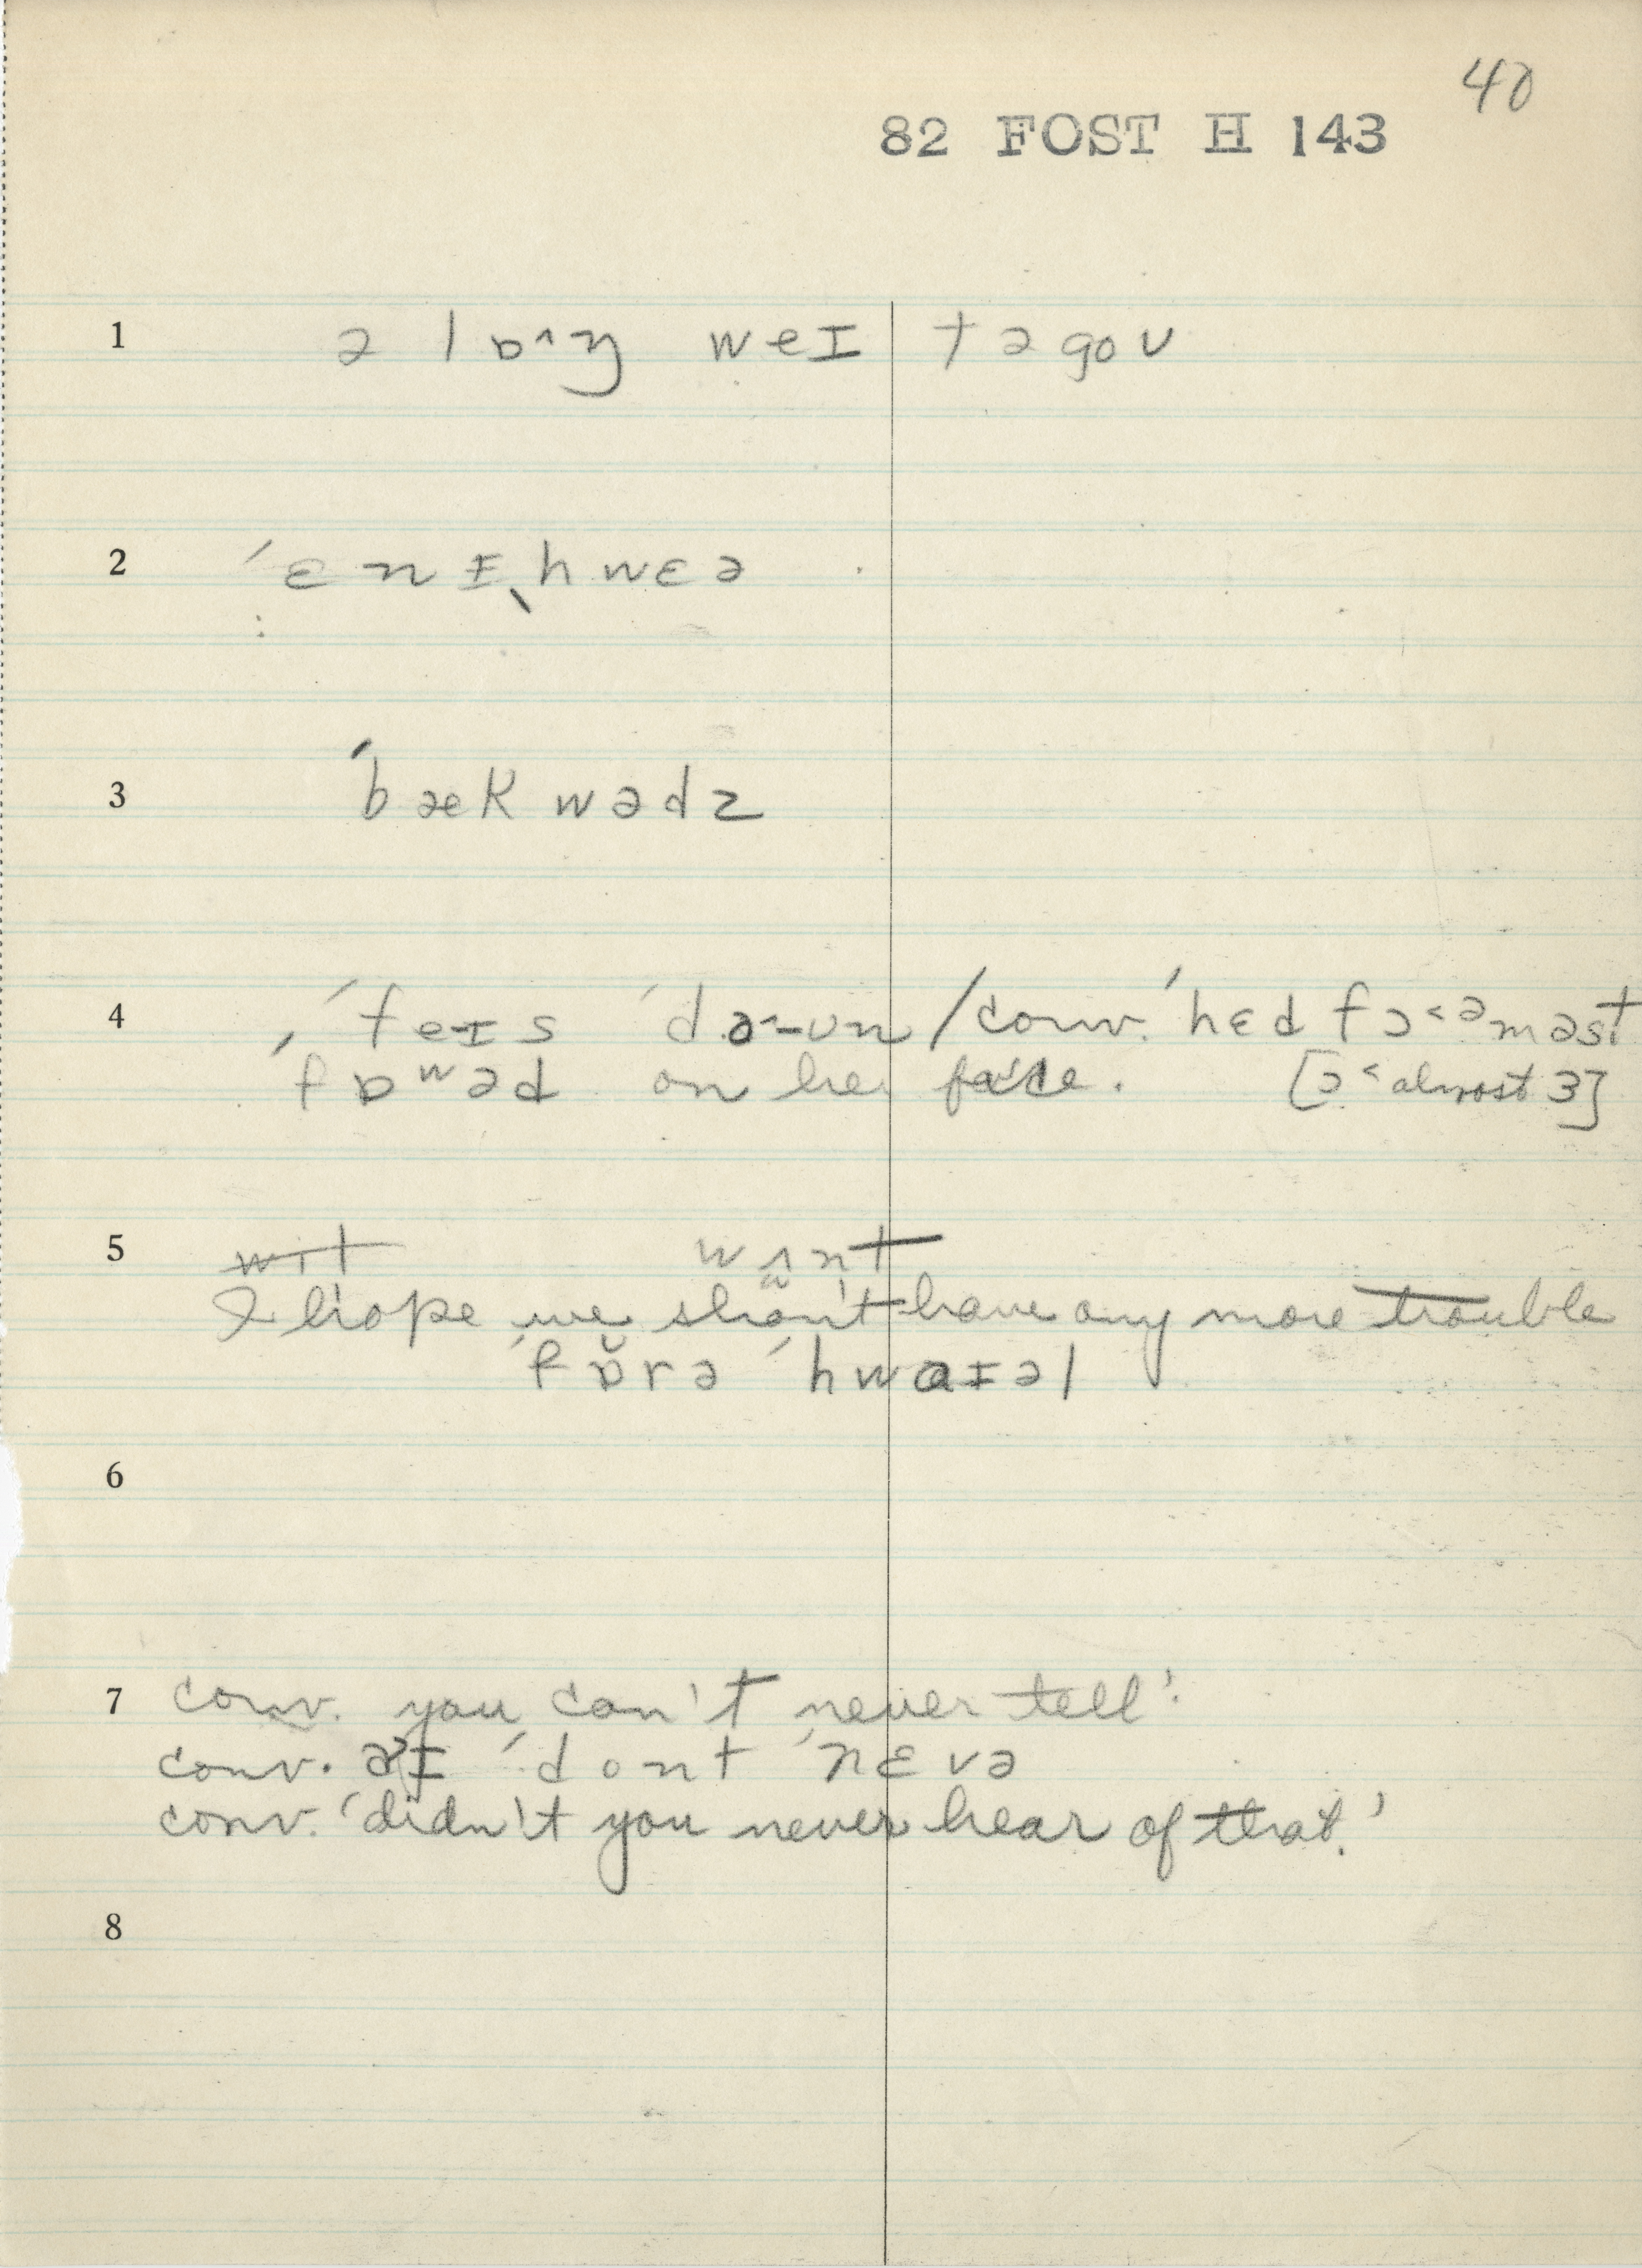 40
82 FOST H 143
1 ə lɒ^ŋ weɪ təgoʊ
2 ´ɛnɪˎhwɛə
3 ´bækwədz
4 ´feɪs ´daʊn /conv. ´hɛd fɔ˂ᵊməst
´fɒʷəd on her face. [ɔ˂ almost ɜ]
5 wit wʌnt
I hope we shan't have any more trouble
´fɒ̆rə ´hwaɪəl
6
7 conv. you can't never tell'.
conv. aɪ ´dont ´nɛvə
conv. 'didn't you never hear of that.'
8